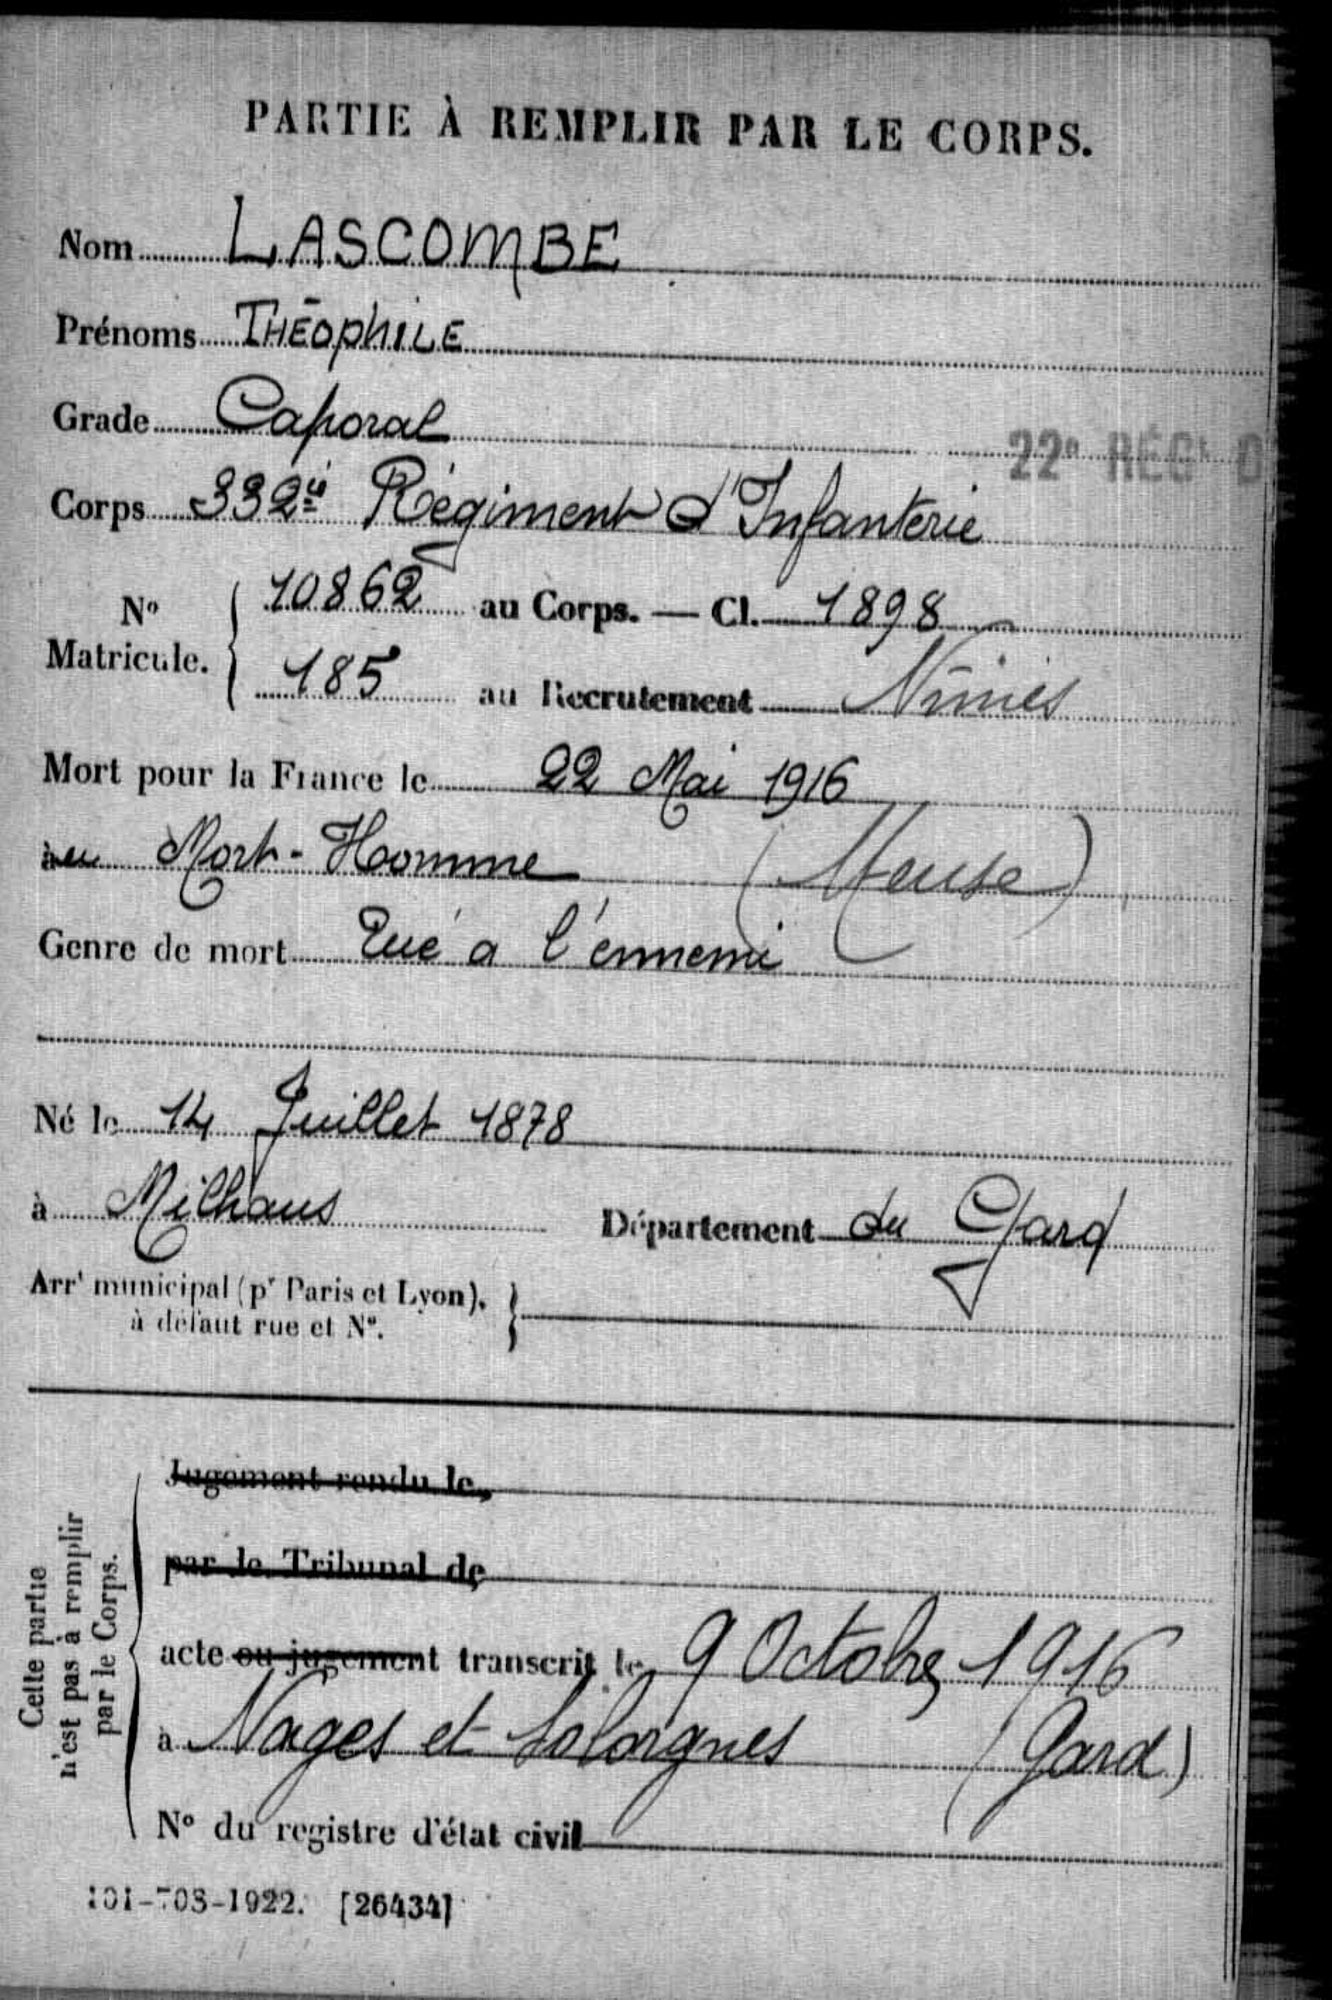 PARTIE À REMPLIR PAR LE CORPS.
Nom LASCOMBE
Prénoms THÉOPHILE
Grade Caporal
22e RÉGt
Corps 332e Régiment d'Infanterie
No Matricule. 10862 au Corps. — Cl. 1898
185 au Recrutement Nîmes
Mort pour la France le 22 Mai 1916
au Mort-Homme (Meuse)
Genre de mort Tué a l'ennemi
Né le 14 Juillet 1878
à Milhaus Département du Gard
Arrt municipal (pr Paris et Lyon),
à défaut rue et No.
Cette partie
n'est pas à remplir
par le Corps.
Jugement rendu le,
par le Tribunal de
acte ou jugement transcrit le 9 Octobre 1916
à Nages et Solorgues (Gard)
No du registre d'état civil
101-703-1922. [26434]